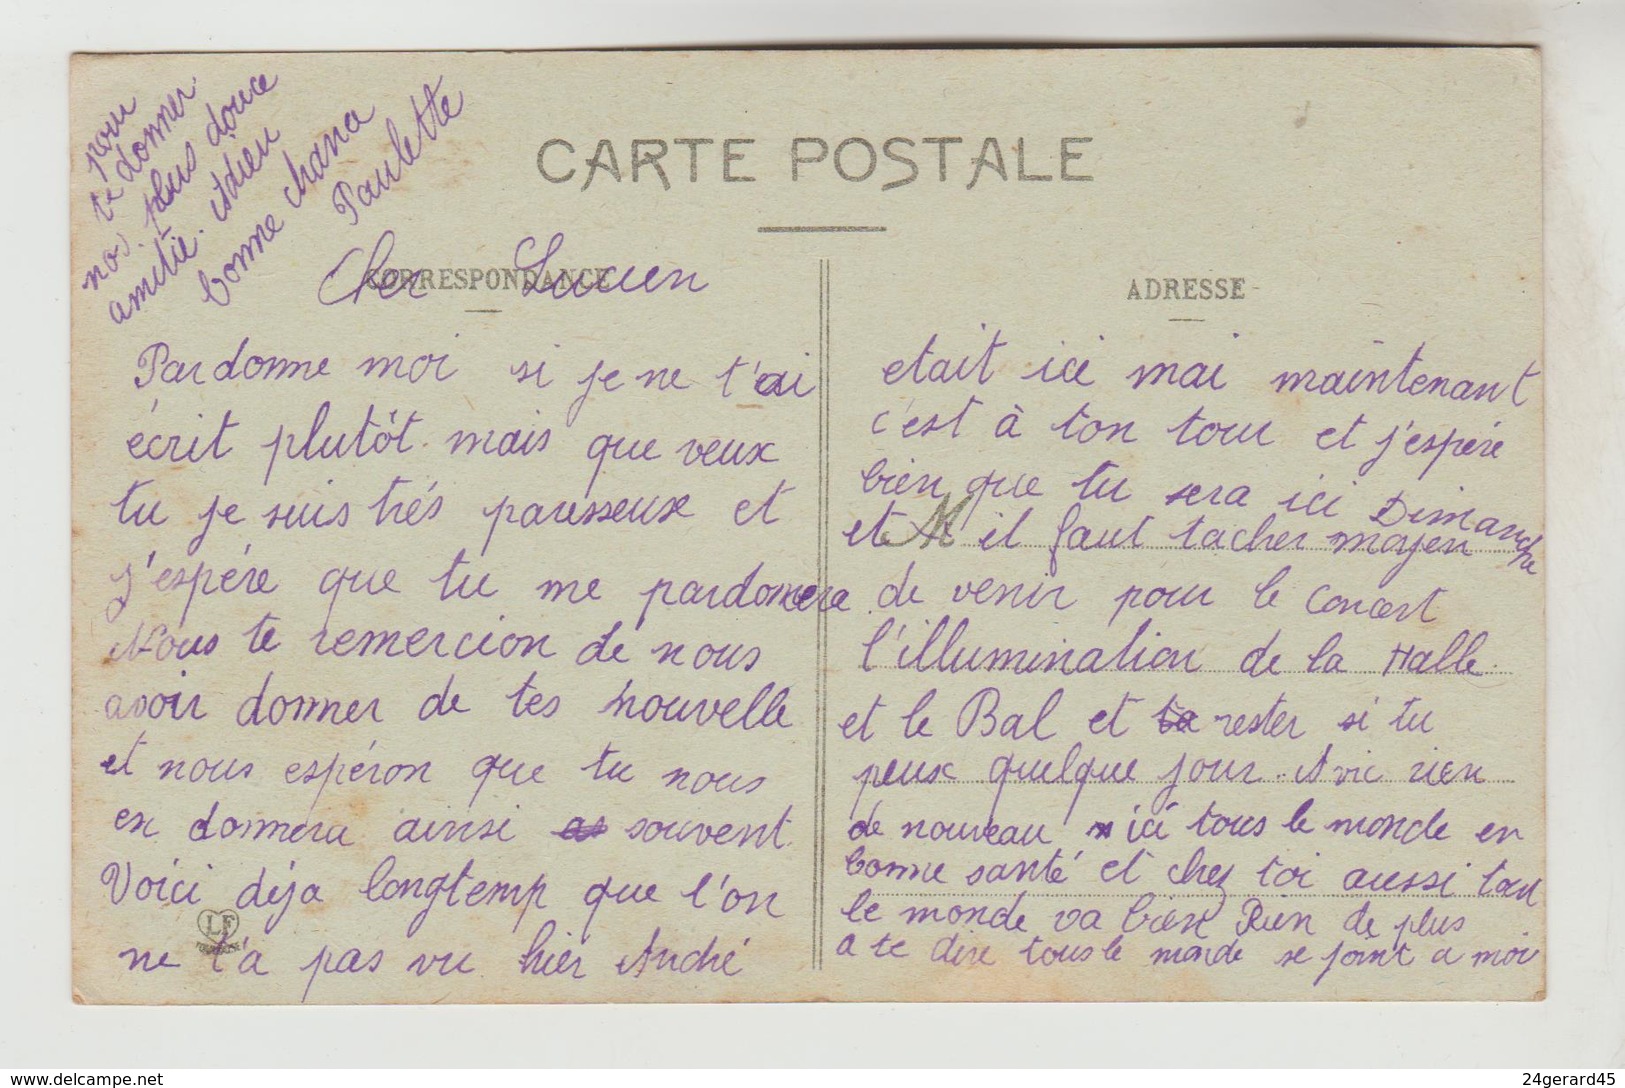 CARTE POSTALE
CORRESPONDANCE
ADRESSE
Cher Lucien
Pardonne moi si je ne t'ai
écrit plutôt mais que veux
tu je suis trés paresseuse et
j'espére que tu me pardonnera
Nous te remercion de nous
avoir donner de tes nouvelle
et nous espéron que tu nous
en donnera ainsi souvent.
Voici déja longtemp que l'on
ne t'a pas vu hier André
etait ici mai maintenant
c'est à ton tour et j'espére
bien que tu sera ici Dimanche
et il faut tacher moyen
de venir pour le Concert
l'illumination de la Halle
et le Bal et rester si tu
peux quelque jour. A vic rien
de nouveau ici tous le monde en
bonne santé et chez toi aussi tou
le monde va bien Rien de plus
a te dire tous le monde se joint a moi
pour
te donner
nos plus douce
amitié. Adieu
bonne chance
Paulette
LF
www.delcampe.net
24gerard45